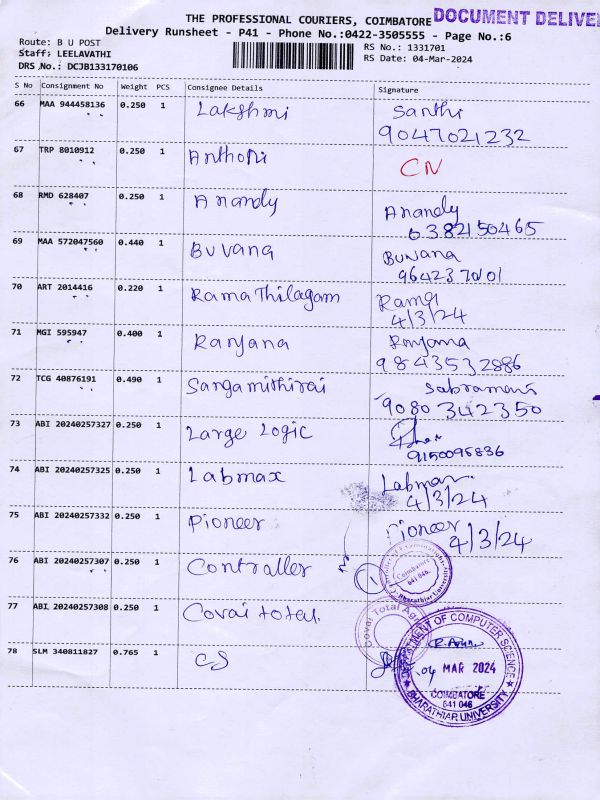 THE PROFESSIONAL COURIERS, COIMBATORE DOCUMENT DELIVE
Delivery Runsheet - P41 - Phone No.:0422-3505555 - Page No.:6
Route: B U POST
Staff: LEELAVATHI
DRS No.: DCJB133170106
RS No.: 1331701
RS Date: 04-Mar-2024
S No Consignment No Weight PCS Consignee Details Signature
66 MAA 944458136 0.250 1 Lakshmi Santhi
9047021232
67 TRP 8010912 0.250 1 Anthoni CN
68 RMD 628407 0.250 1 Anandy Anandy
6382150465
69 MAA 572047560 0.440 1 Buvana Buvana
70 ART 2014416 0.220 1 Rama Thilagam Rama
4/3/24
71 MGI 595947 0.400 1 Ranjana Ranjana
9843532886
72 TCG 40876191 0.490 1 Sangamithirai
9080 342350
73 ABI 20240257327 0.250 1 Large Logic
9150095836
74 ABI 20240257325 0.250 1 Labmax Labmax
4/3/24
75 ABI 20240257332 0.250 1 Pioneer Pioneer
4/3/24
76 ABI 20240257307 0.250 1 Controller
Coimbatore
641 046.
Bharathiar University
77 ABI 20240257308 0.250 1 Covai total.
Covai Total
78 SLM 340811827 0.765 1 CS
DEPARTMENT OF COMPUTER SCIENCE
04 MAR 2024
COIMBATORE
641 046
BHARATHIAR UNIVERSITY